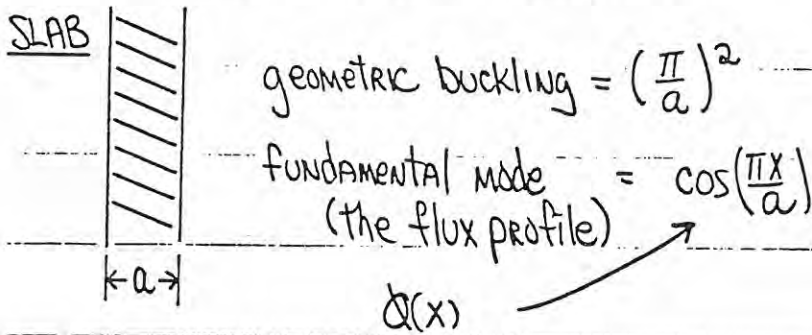 SLAB
geometric buckling = (π/a)²
fundamental mode = cos(πx/a)
(the flux profile)
a
Φ(x)